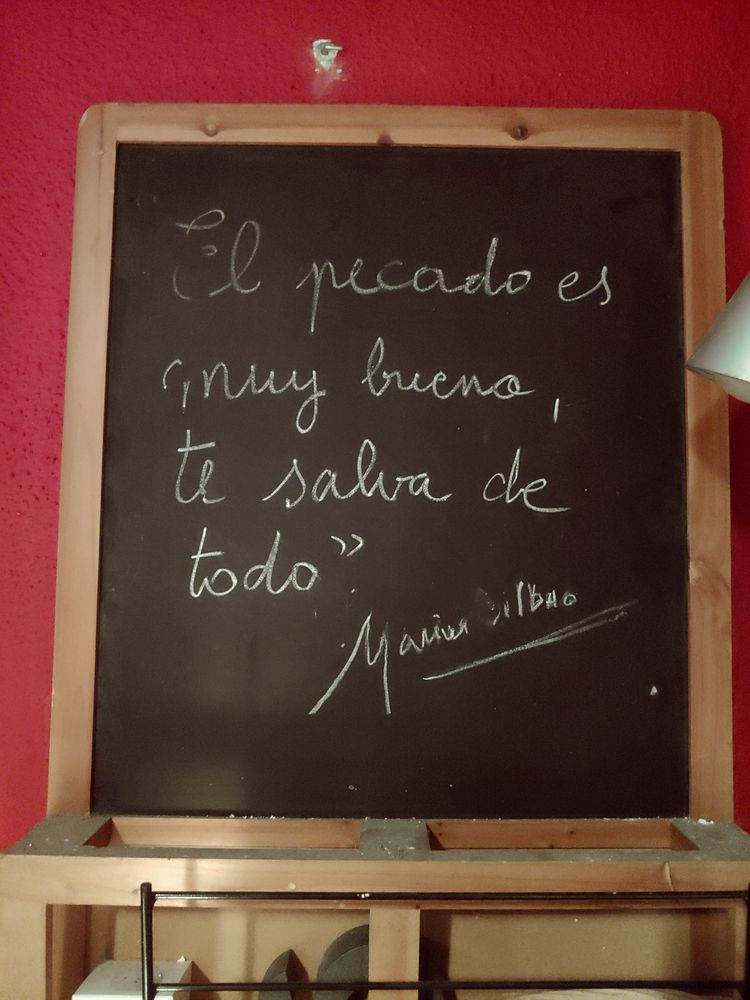 El pecado es
"muy bueno,
te salva de
todo".
Bilbao